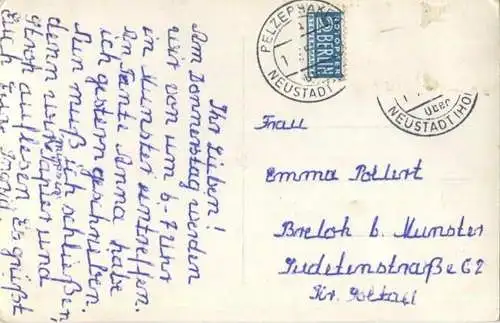 Ihr Lieben!
Am Donnerstag werden
wir von um 6-7 Uhr
in Munster eintreffen.
An Tante Anna habe
ich gestern geschrieben.
Nun muß ich schließen,
denn wir müssen
Papier und
auflesen. Es grüßt
Euch Eure Ingrid
PELZERHAKEN
NOTOPFER
2 BERLIN
STEUERMARKE
NEUSTADT
über
NEUSTADT (HOL
Frau
Emma Pollert
Breloh b. Munster
Sudetenstraße 62
Kr. Soltau